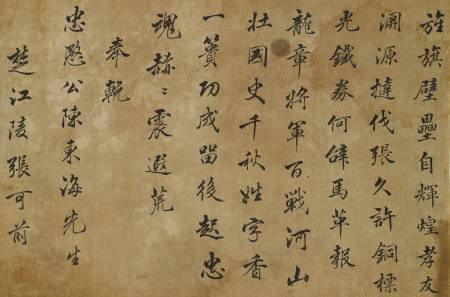 旌旗壁壘自輝煌孝友
淵源撻伐張久許銅標
光鐵券何辭馬革報
龍章將軍百戰河山
壯國史千秋姓字香
一簣功成留後起忠
魂赫〻震遐荒
奉輓
忠愍公陳東海先生
楚江陵張可前